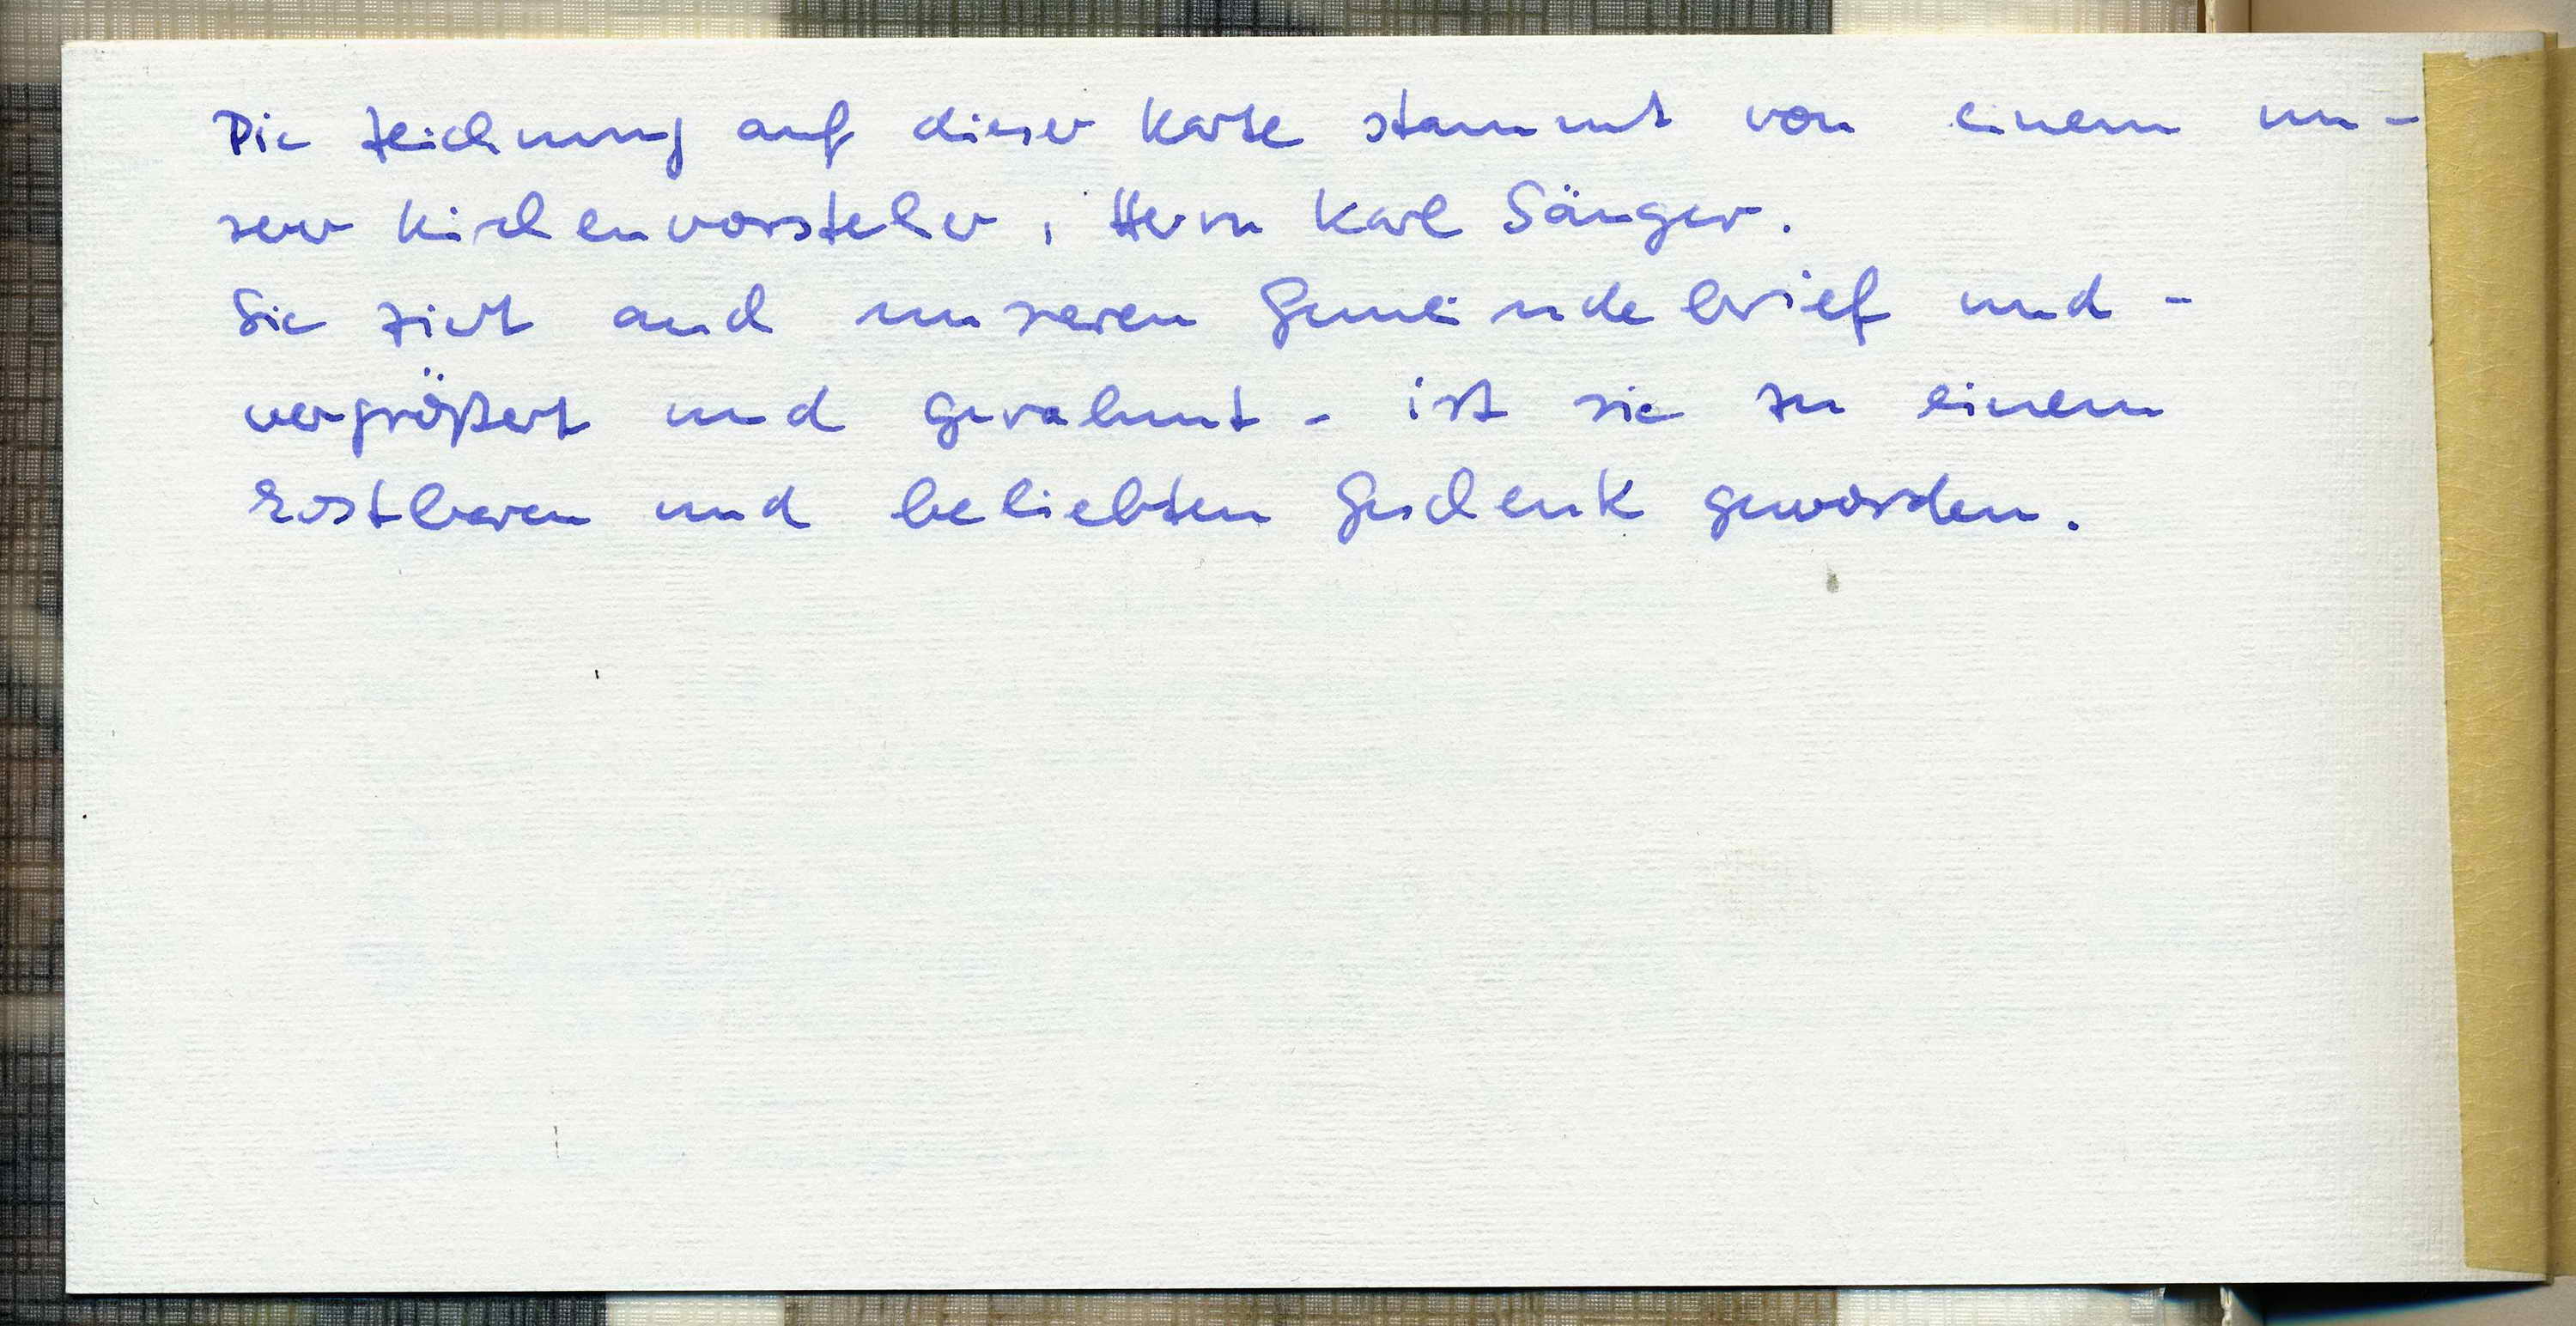 Die Zeichnung auf dieser Karte stammt von einem un-
serer Kirchenvorsteher, Herrn Karl Sänger.
Sie ziert auch unseren Gemeindebrief und -
vergrößert und gerahmt - ist sie zu einem
kostbaren und beliebten Geschenk geworden.